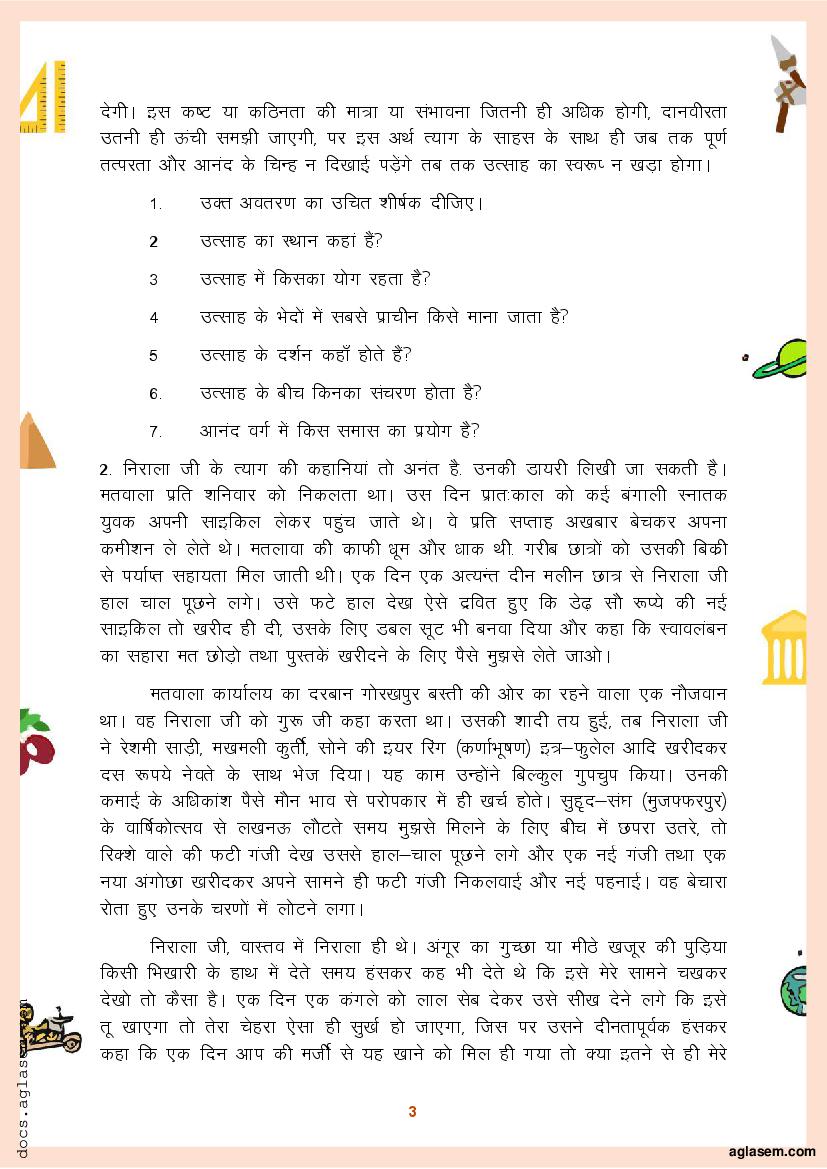 देगी। इस कष्ट या कठिनता की मात्रा या संभावना जितनी ही अधिक होगी, दानवीरता
उतनी ही ऊंची समझी जाएगी, पर इस अर्थ त्याग के साहस के साथ ही जब तक पूर्ण
तत्परता और आनंद के चिन्ह न दिखाई पड़ेंगे तब तक उत्साह का स्वरूप न खड़ा होगा।
1. उक्त अवतरण का उचित शीर्षक दीजिए।
2 उत्साह का स्थान कहां हैं?
3 उत्साह में किसका योग रहता है?
4 उत्साह के भेदों में सबसे प्राचीन किसे माना जाता है?
5 उत्साह के दर्शन कहाँ होते हैं?
6. उत्साह के बीच किनका संचरण होता है?
7. आनंद वर्ग में किस समास का प्रयोग है?
2. निराला जी के त्याग की कहानियां तो अनंत है. उनकी डायरी लिखी जा सकती है।
मतवाला प्रति शनिवार को निकलता था। उस दिन प्रात:काल को कई बंगाली स्नातक
युवक अपनी साइकिल लेकर पहुंच जाते थे। वे प्रति सप्ताह अखबार बेचकर अपना
कमीशन ले लेते थे। मतलावा की काफी धूम और धाक थी. गरीब छात्रों को उसकी बिक्री
से पर्याप्त सहायता मिल जाती थी। एक दिन एक अत्यन्त दीन मलीन छात्र से निराला जी
हाल चाल पूछने लगे। उसे फटे हाल देख ऐसे द्रवित हुए कि डेढ़ सौ रूप्ये की नई
साइकिल तो खरीद ही दी, उसके लिए डबल सूट भी बनवा दिया और कहा कि स्वावलंबन
का सहारा मत छोड़ो तथा पुस्तकें खरीदने के लिए पैसे मुझसे लेते जाओ।
मतवाला कार्यालय का दरबान गोरखपुर बस्ती की ओर का रहने वाला एक नौजवान
था। वह निराला जी को गुरू जी कहा करता था। उसकी शादी तय हुई, तब निराला जी
ने रेशमी साड़ी, मखमली कुर्ती, सोने की इयर रिंग (कर्णाभूषण) इत्र–फुलेल आदि खरीदकर
दस रूपये नेवते के साथ भेज दिया। यह काम उन्होंने बिल्कुल गुपचुप किया। उनकी
कमाई के अधिकांश पैसे मौन भाव से परोपकार में ही खर्च होते। सुहृद–संघ (मुजफ्फरपुर)
के वार्षिकोत्सव से लखनऊ लौटते समय मुझसे मिलने के लिए बीच में छपरा उतरे, तो
रिक्शे वाले की फटी गंजी देख उससे हाल–चाल पूछने लगे और एक नई गंजी तथा एक
नया अंगोछा खरीदकर अपने सामने ही फटी गंजी निकलवाई और नई पहनाई। वह बेचारा
रोता हुए उनके चरणों में लोटने लगा।
निराला जी, वास्तव में निराला ही थे। अंगूर का गुच्छा या मीठे खजूर की पुड़िया
किसी भिखारी के हाथ में देते समय हंसकर कह भी देते थे कि इसे मेरे सामने चखकर
देखो तो कैसा है। एक दिन एक कंगले को लाल सेब देकर उसे सीख देने लगे कि इसे
तू खाएगा तो तेरा चेहरा ऐसा ही सुर्ख हो जाएगा, जिस पर उसने दीनतापूर्वक हंसकर
कहा कि एक दिन आप की मर्जी से यह खाने को मिल ही गया तो क्या इतने से ही मेरे
3
aglasem.com